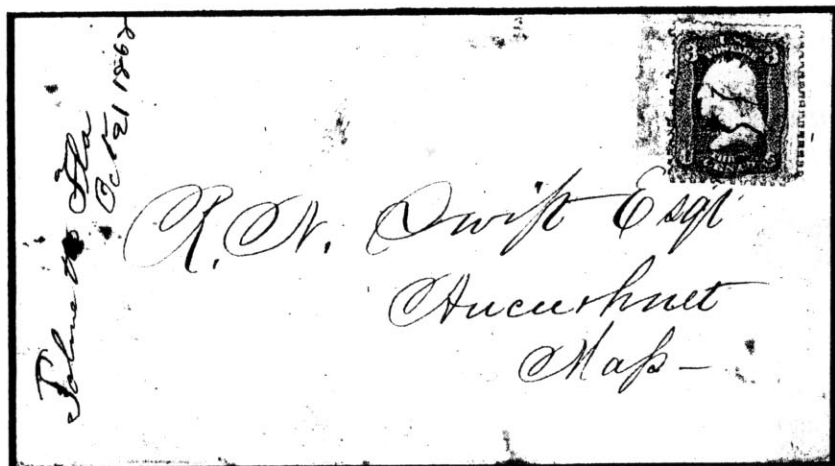 Palmetto Fla
Oct 21 1868
R. N. Swift Esqr
Accushnet
Mass -
3 3